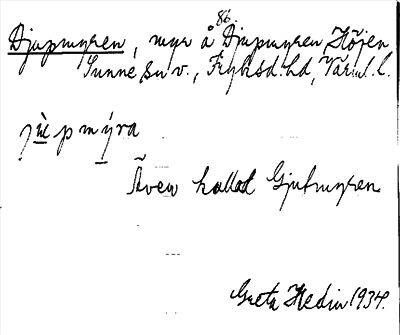 86.
Djupmyren, myr å Djupmyren, Höjen,
Sunne sn v., Fryksd. hd, Värml. l.
jùpmýra
Även kallat Gjutmyren
Greta Hedin 1934.